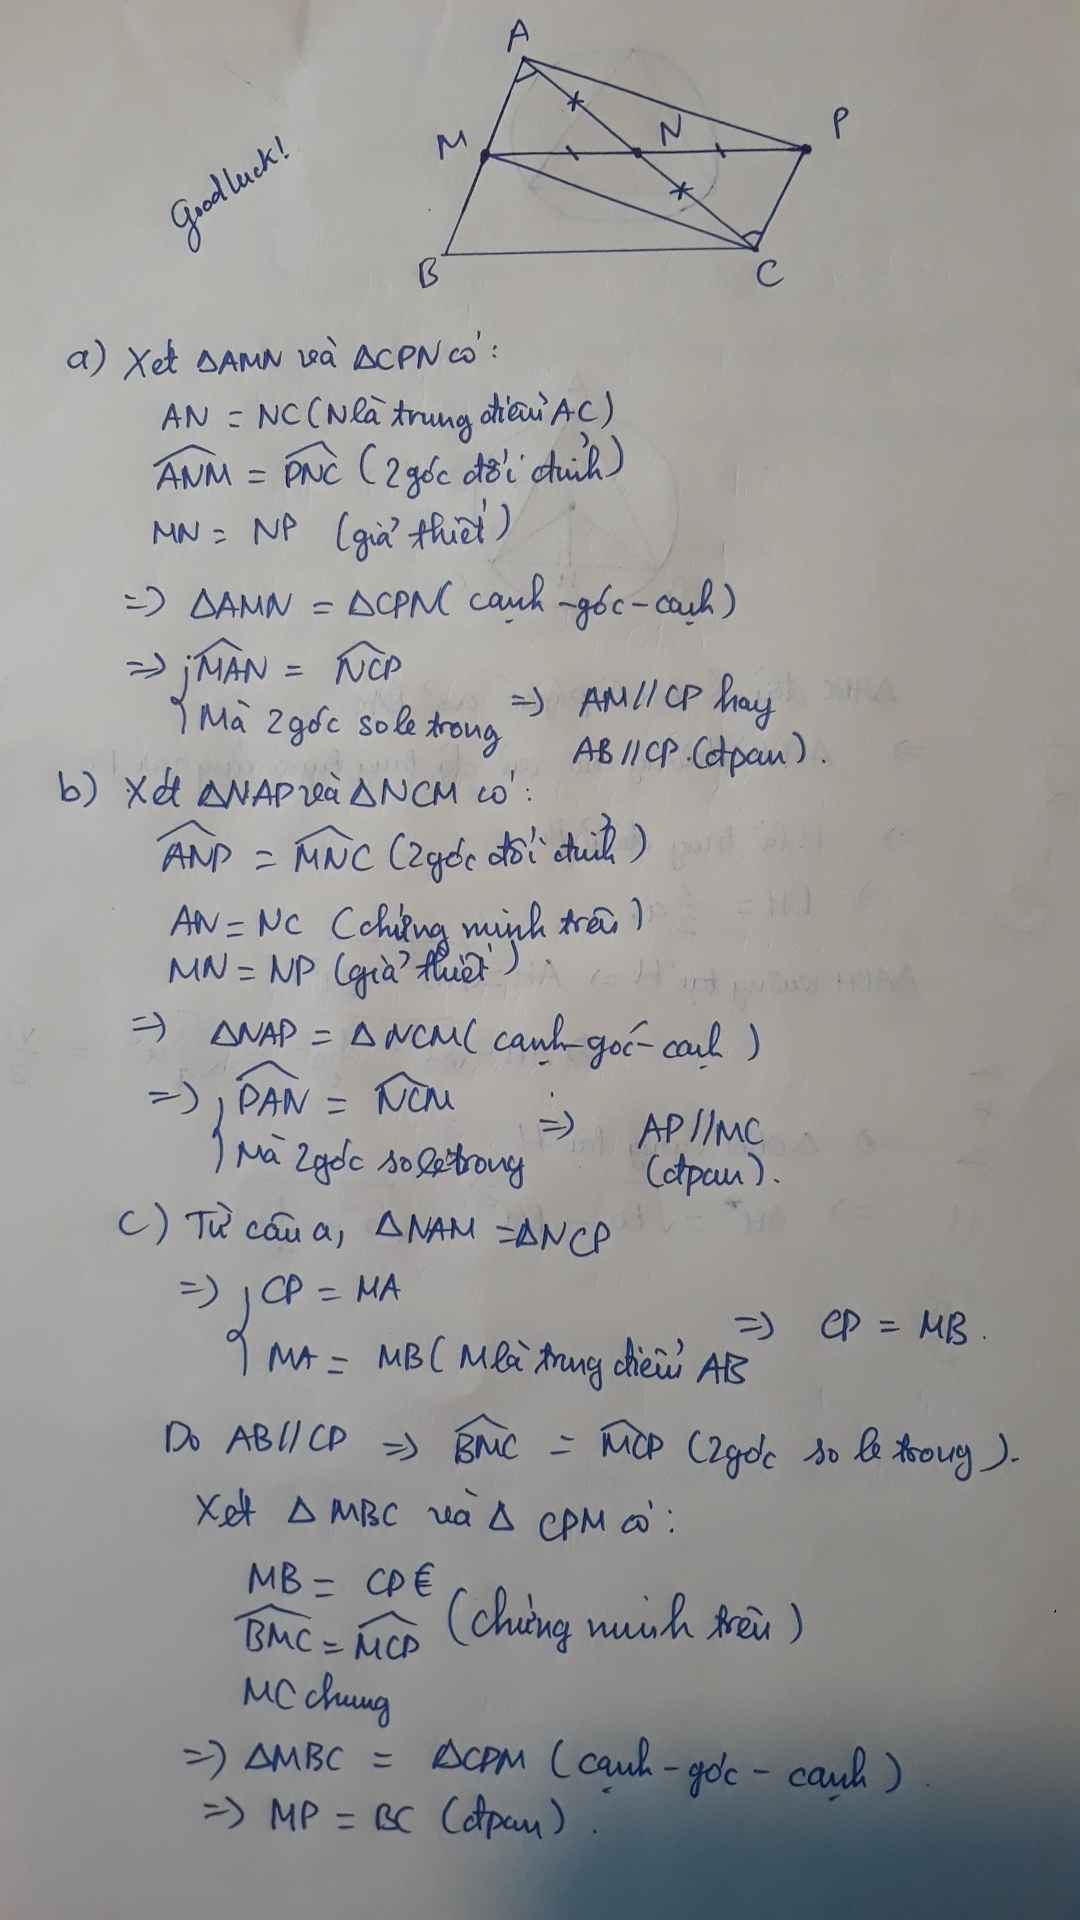 A
M
N
P
B
C
Goodluck!
a) Xét ΔAMN và ΔCPN có:
AN = NC (N là trung điểm AC)
∠ANM = ∠PNC (2 góc đối đỉnh)
MN = NP (giả thiết)
=> ΔAMN = ΔCPN (cạnh-góc-cạnh)
=> { ∠MAN = ∠NCP
Mà 2 góc so le trong => AM//CP hay
AB//CP. (đpcm).
b) Xét ΔNAP và ΔNCM có:
∠ANP = ∠MNC (2 góc đối đỉnh)
AN = NC (chứng minh trên)
MN = NP (giả thiết)
=> ΔNAP = ΔNCM (cạnh-góc-cạnh)
=> { ∠PAN = ∠NCM
Mà 2 góc so le trong => AP//MC
(đpcm).
c) Từ câu a, ΔNAM = ΔNCP
=> { CP = MA
MA = MB (M là trung điểm AB => CP = MB.
Do AB//CP => ∠BMC = ∠MCP (2 góc so le trong).
Xét Δ MBC và Δ CPM có:
MB = CP
∠BMC = ∠MCP (chứng minh trên)
MC chung
=> ΔMBC = ΔCPM (cạnh-góc-cạnh).
=> MP = BC (đpcm).